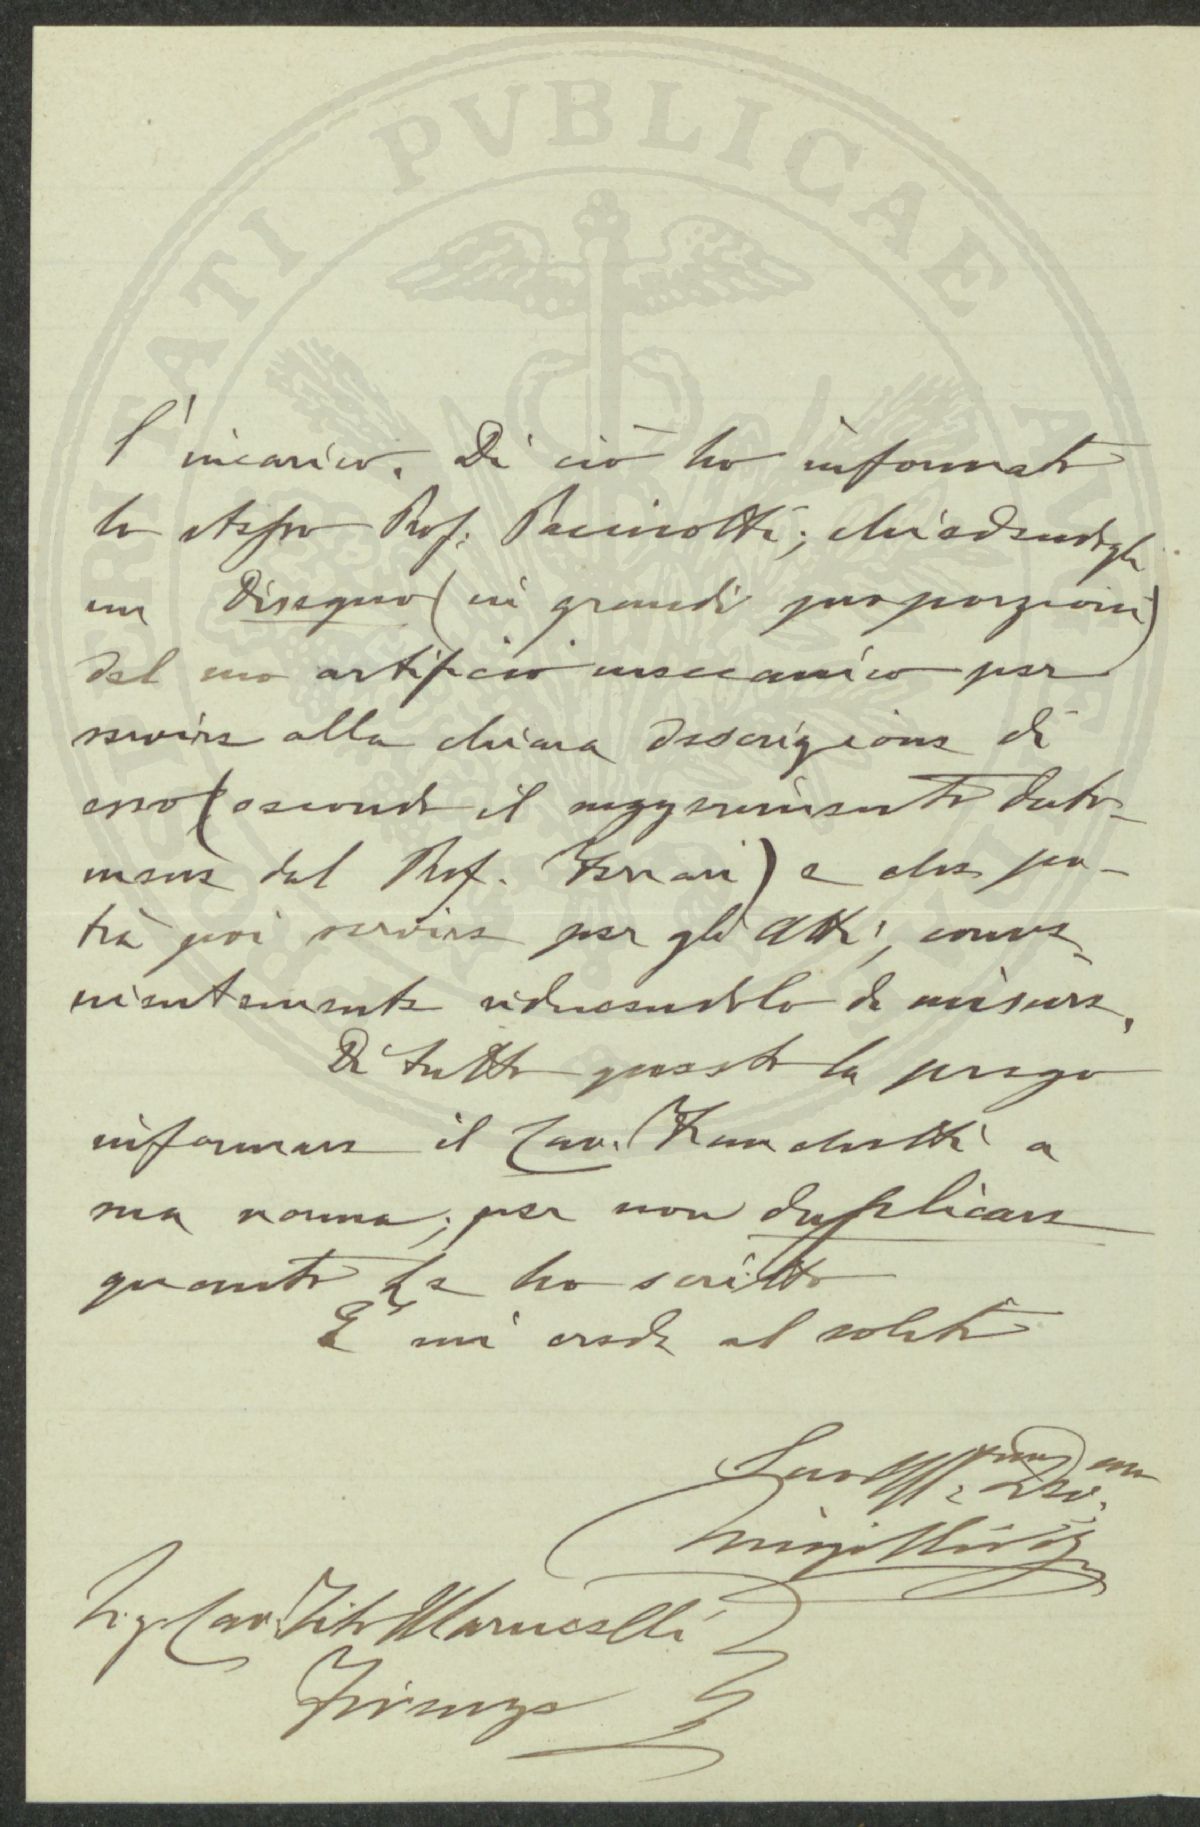 PROSPERITATI PVBLICAE AVGENDAE
l'incarico. Di ciò ho informato
lo stesso Prof: Pacinotti; chiedendogli
un Disegno (in grandi proporzioni)
del suo artificio meccanico per
servire alla chiara descrizione di
esso (secondo il suggerimento dato-
mene dal Prof. Ferrari) e che po-
trà poi servire per gli Atti, conve-
nientemente riducendolo di misura.
Di tutto questo la prego
informare il Cav. Franchetti a
sua norma; per non duplicare
quanto Le ho scritto
E mi creda al solito
Suo
Luigi
Sig. Cav. Tito Marucelli
Firenze